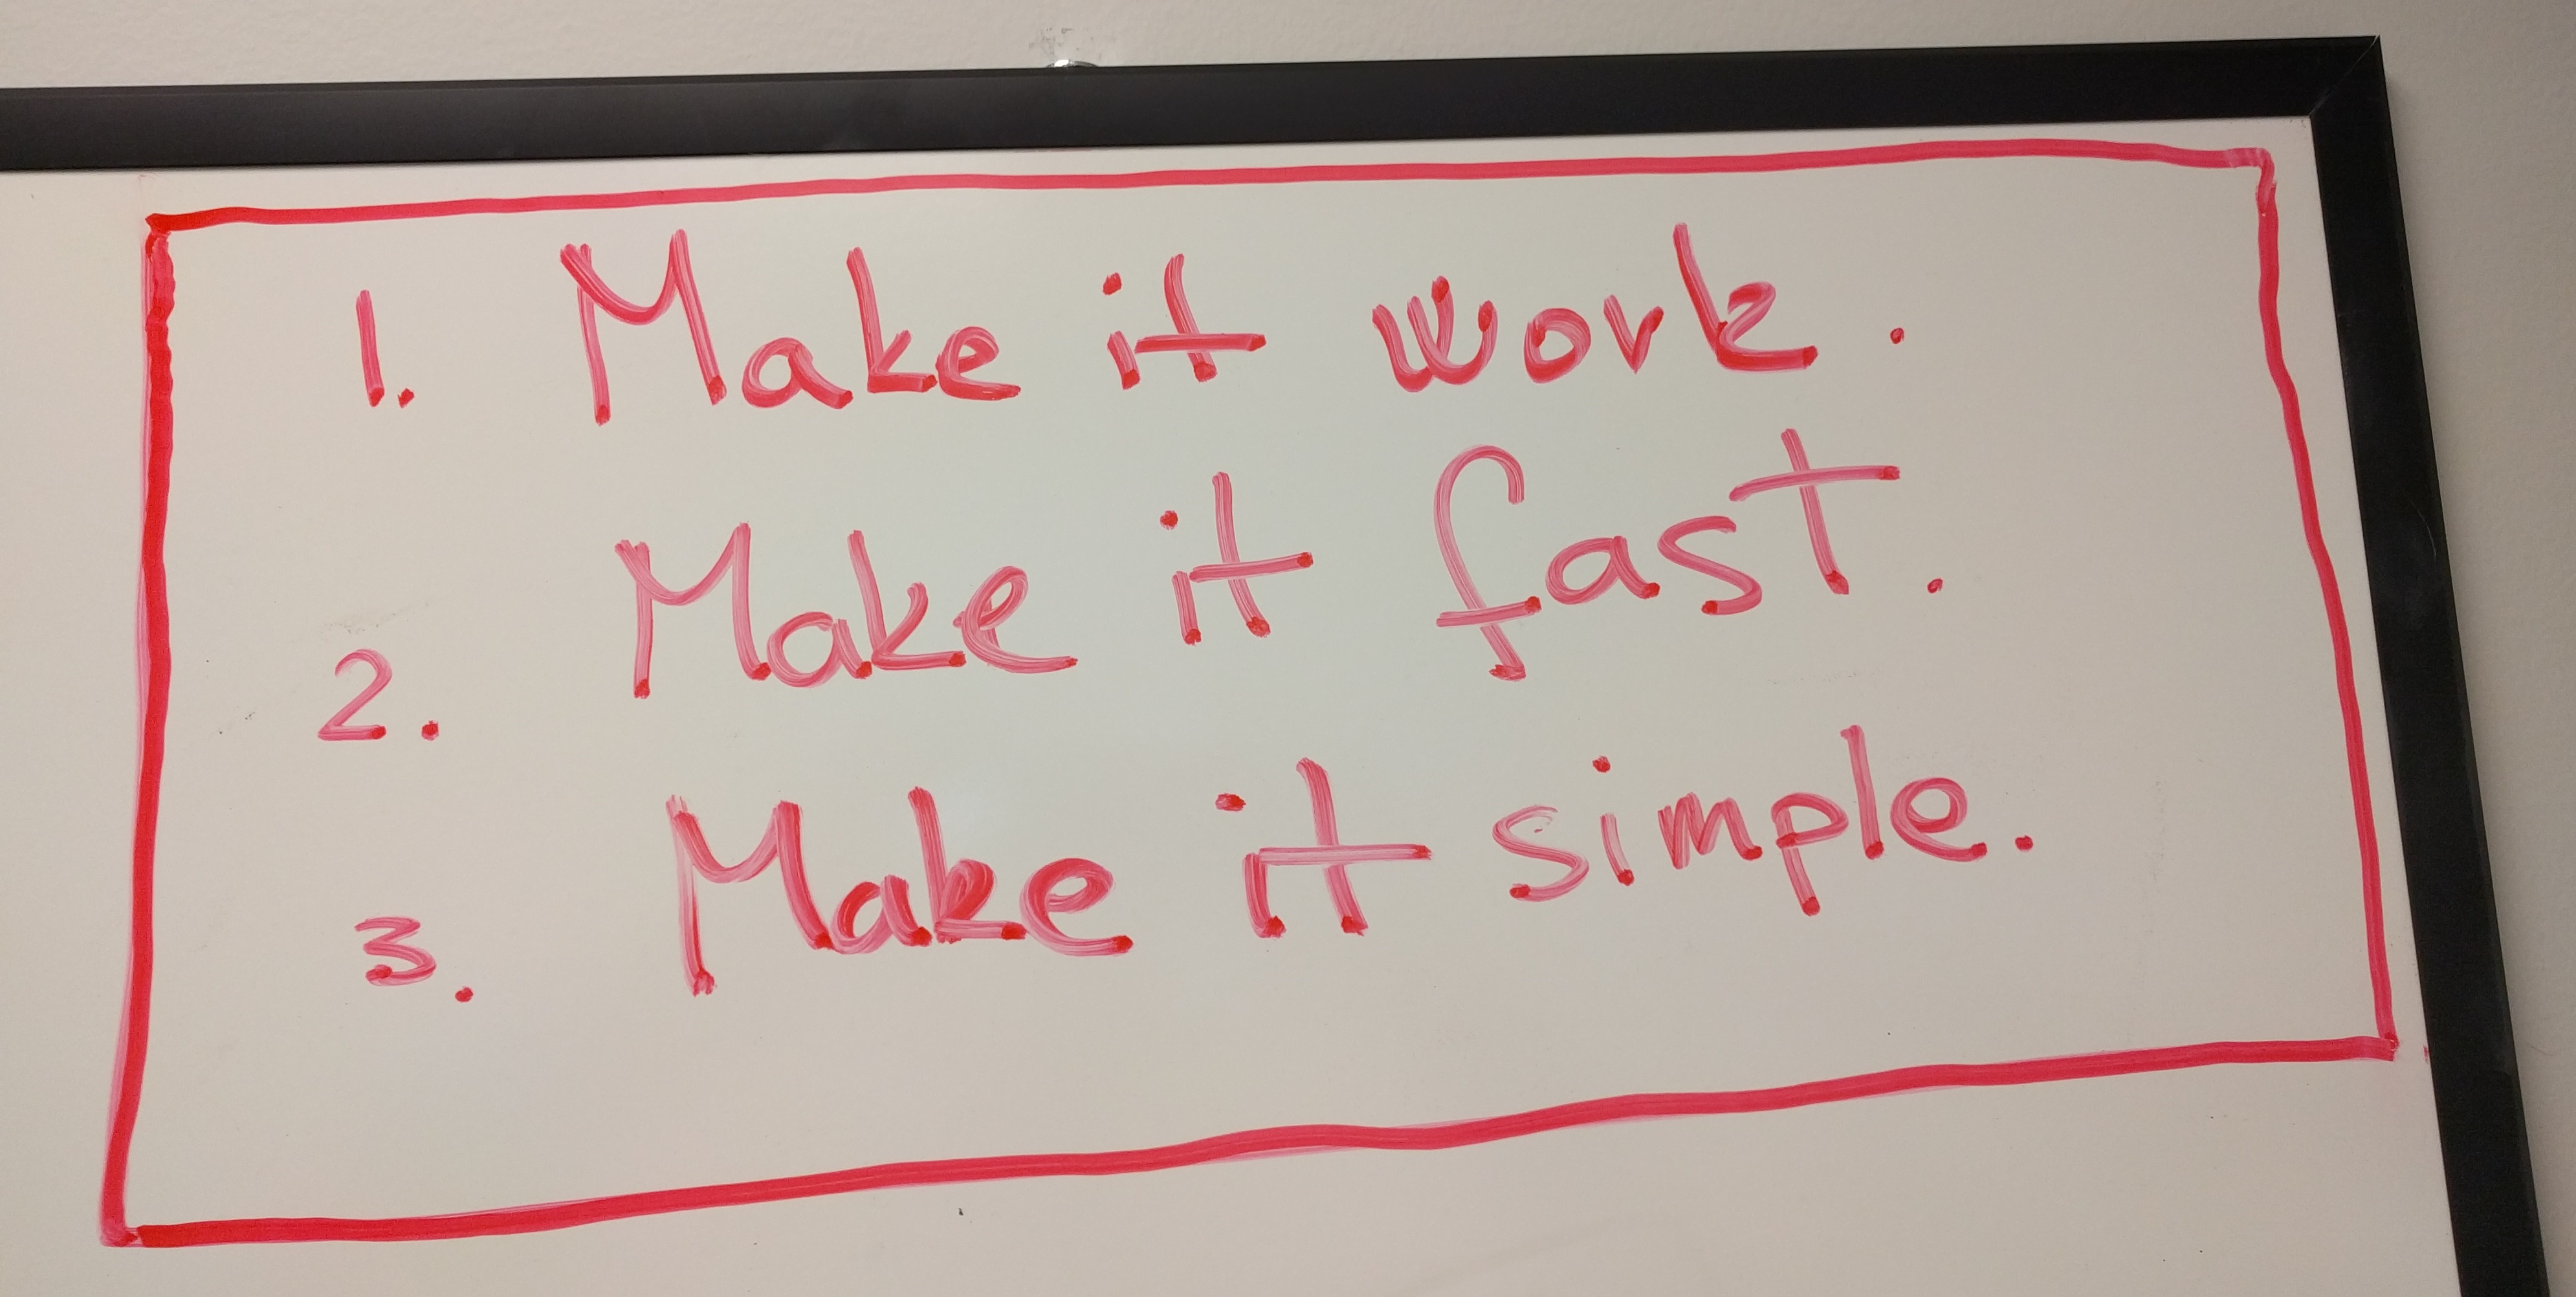 1. Make it work.
2. Make it fast.
3. Make it simple.